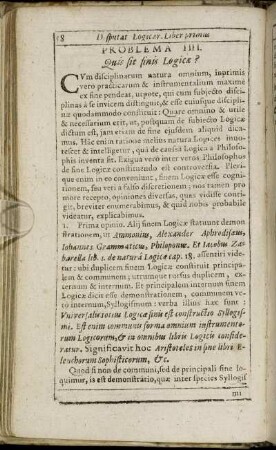 8 Disputat. Logicar. Liber primus
PROBLEMA IIII.
Quis sit finis Logicæ?
CVm disciplinarum natura omnium, inprimis
vero practicarum & instrumentalium maxime
ex fine pendeat, utpote, qui cum subjecto discipli
nas à se invicem distinguit, & esse cuiusque disciplinæ
quodammodo constituit: Quare omnino & utile
& necessarium erit, ut, postquam de subjecto Logicæ
dictum est, jam etiam de fine ejusdem aliquid dicamus.
Hic enim ratione melius natura Logices innotescet
& intelligetur, qui de causa Logica à Philosophis
inventa sit. Exigua vero inter veros Philosophus
de fine Logicæ constituendo est controversia. Plerique
enim in eo conveniunt, finem Logicæ esse cognitionem,
seu veri à falso discretionem; nos tamen pro
more recepto, opiniones diversas, quas vidisse contigit,
breviter enumerabimus, & quid nobis probabile
videatur, explicabimus.
1. Prima opinio. Alij finem Logicæ statuunt demonstrationem,
ut Ammonius, Alexander Aphrodisæus,
Iohannes Grammaticus, Philoponus. Et Iacobus Zabarella
lib. 1. de naturâ Logicæ cap. 18. assentiri videtur:
ubi duplicem finem Logicæ constituit principalem
& communem; utrumque rursus duplicem, externum
& internum. Et principalem internum finem
Logicæ dicit esse demonstrationem, communem vero
internum, Syllogismum: verba illius hæc sunt:
Vniversalis totius Logicæ finis est constructio Syllogismi.
Est enim communis forma omnium instrumentorum
Logicorum, & in omnibus libris Logicis consideratur.
Significavit hoc Aristoteles in fine libri Elenchorum
Sophisticorum, &c.
Quod si non de communi, sed de principali fine loquimur,
is est demonstratio, quæ inter species Syllogis
mi